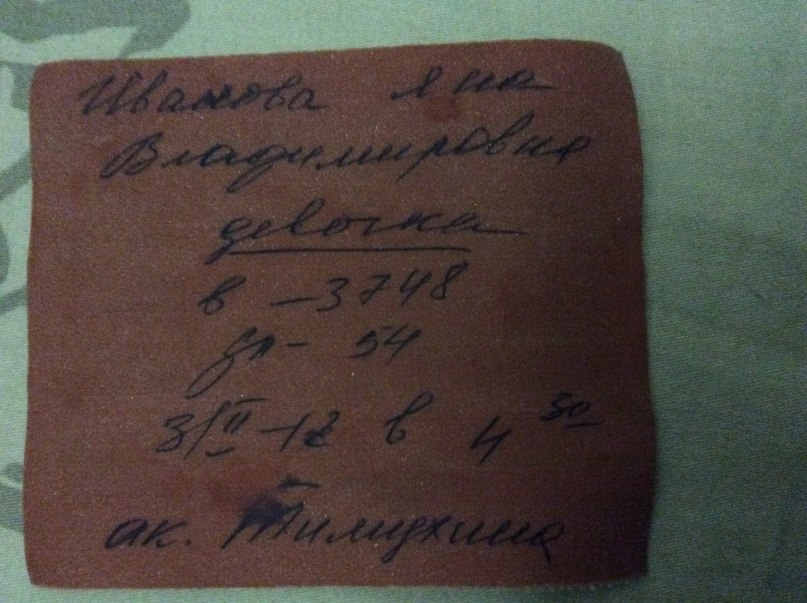 Иванова Яна
Владимировна
девочка
в - 3748
дл - 54
3/II - 12 в 4 50
ак. Тимухина